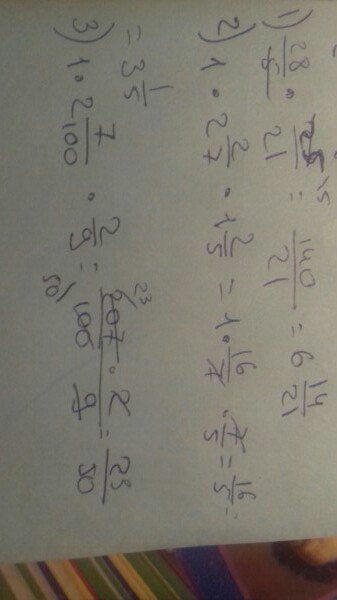 1) 28/5 · /21 = 140/21 = 6 14/21
2) 1 · 2 2/7 · 1 2/5 = 1 · 16/7 · 7/5 = 16/5 =
= 3 1/5
3) 1 · 2 7/100 · 2/9 = 207 · 2/100 · 9 = 23/50
23
50